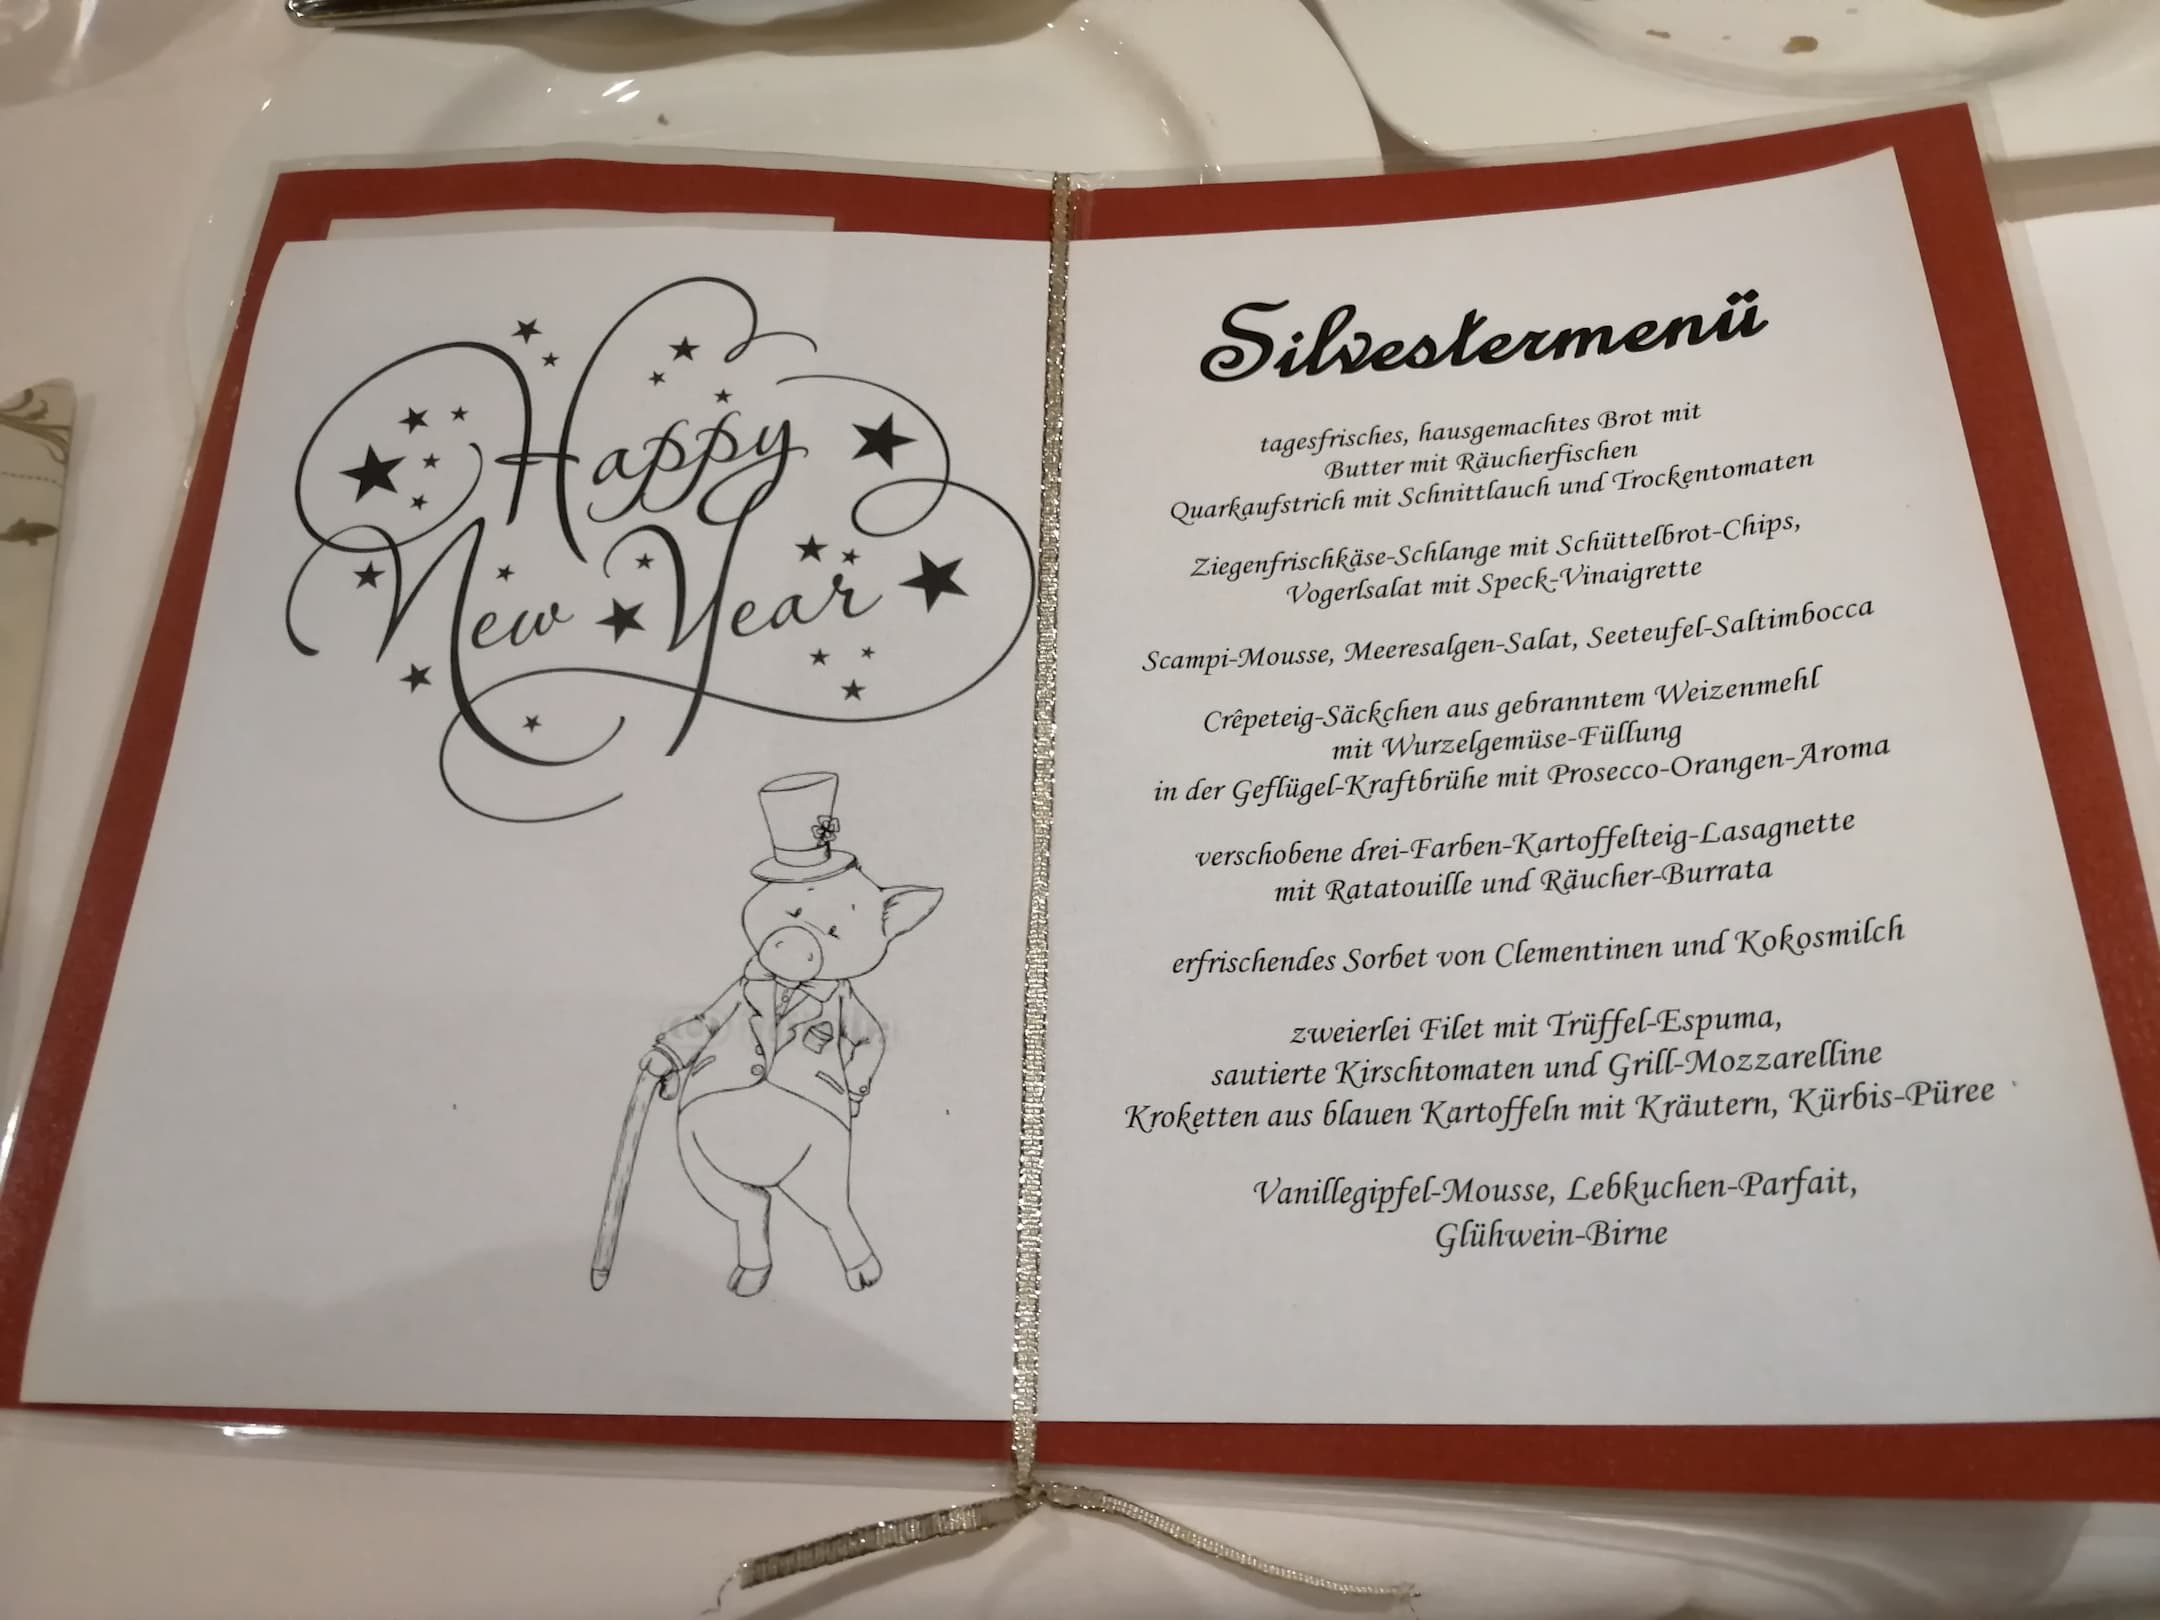 Happy
New Year
Silvestermenü
tagesfrisches, hausgemachtes Brot mit
Butter mit Räucherfischen
Quarkaufstrich mit Schnittlauch und Trockentomaten
Ziegenfrischkäse-Schlange mit Schüttelbrot-Chips,
Vogerlsalat mit Speck-Vinaigrette
Scampi-Mousse, Meeresalgen-Salat, Seeteufel-Saltimbocca
Crêpeteig-Säckchen aus gebranntem Weizenmehl
mit Wurzelgemüse-Füllung
in der Geflügel-Kraftbrühe mit Prosecco-Orangen-Aroma
verschobene drei-Farben-Kartoffelteig-Lasagnette
mit Ratatouille und Räucher-Burrata
erfrischendes Sorbet von Clementinen und Kokosmilch
zweierlei Filet mit Trüffel-Espuma,
sautierte Kirschtomaten und Grill-Mozzarelline
Kroketten aus blauen Kartoffeln mit Kräutern, Kürbis-Püree
Vanillegipfel-Mousse, Lebkuchen-Parfait,
Glühwein-Birne